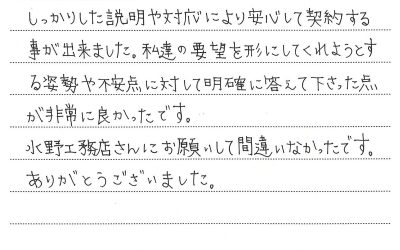 しっかりした説明や対応により安心して契約する
事が出来ました。私達の要望を形にしてくれようとす
る姿勢や不安点に対して明確に答えて下さった点
が非常に良かったです。
水野工務店さんにお願いして間違いなかったです。
ありがとうございました。